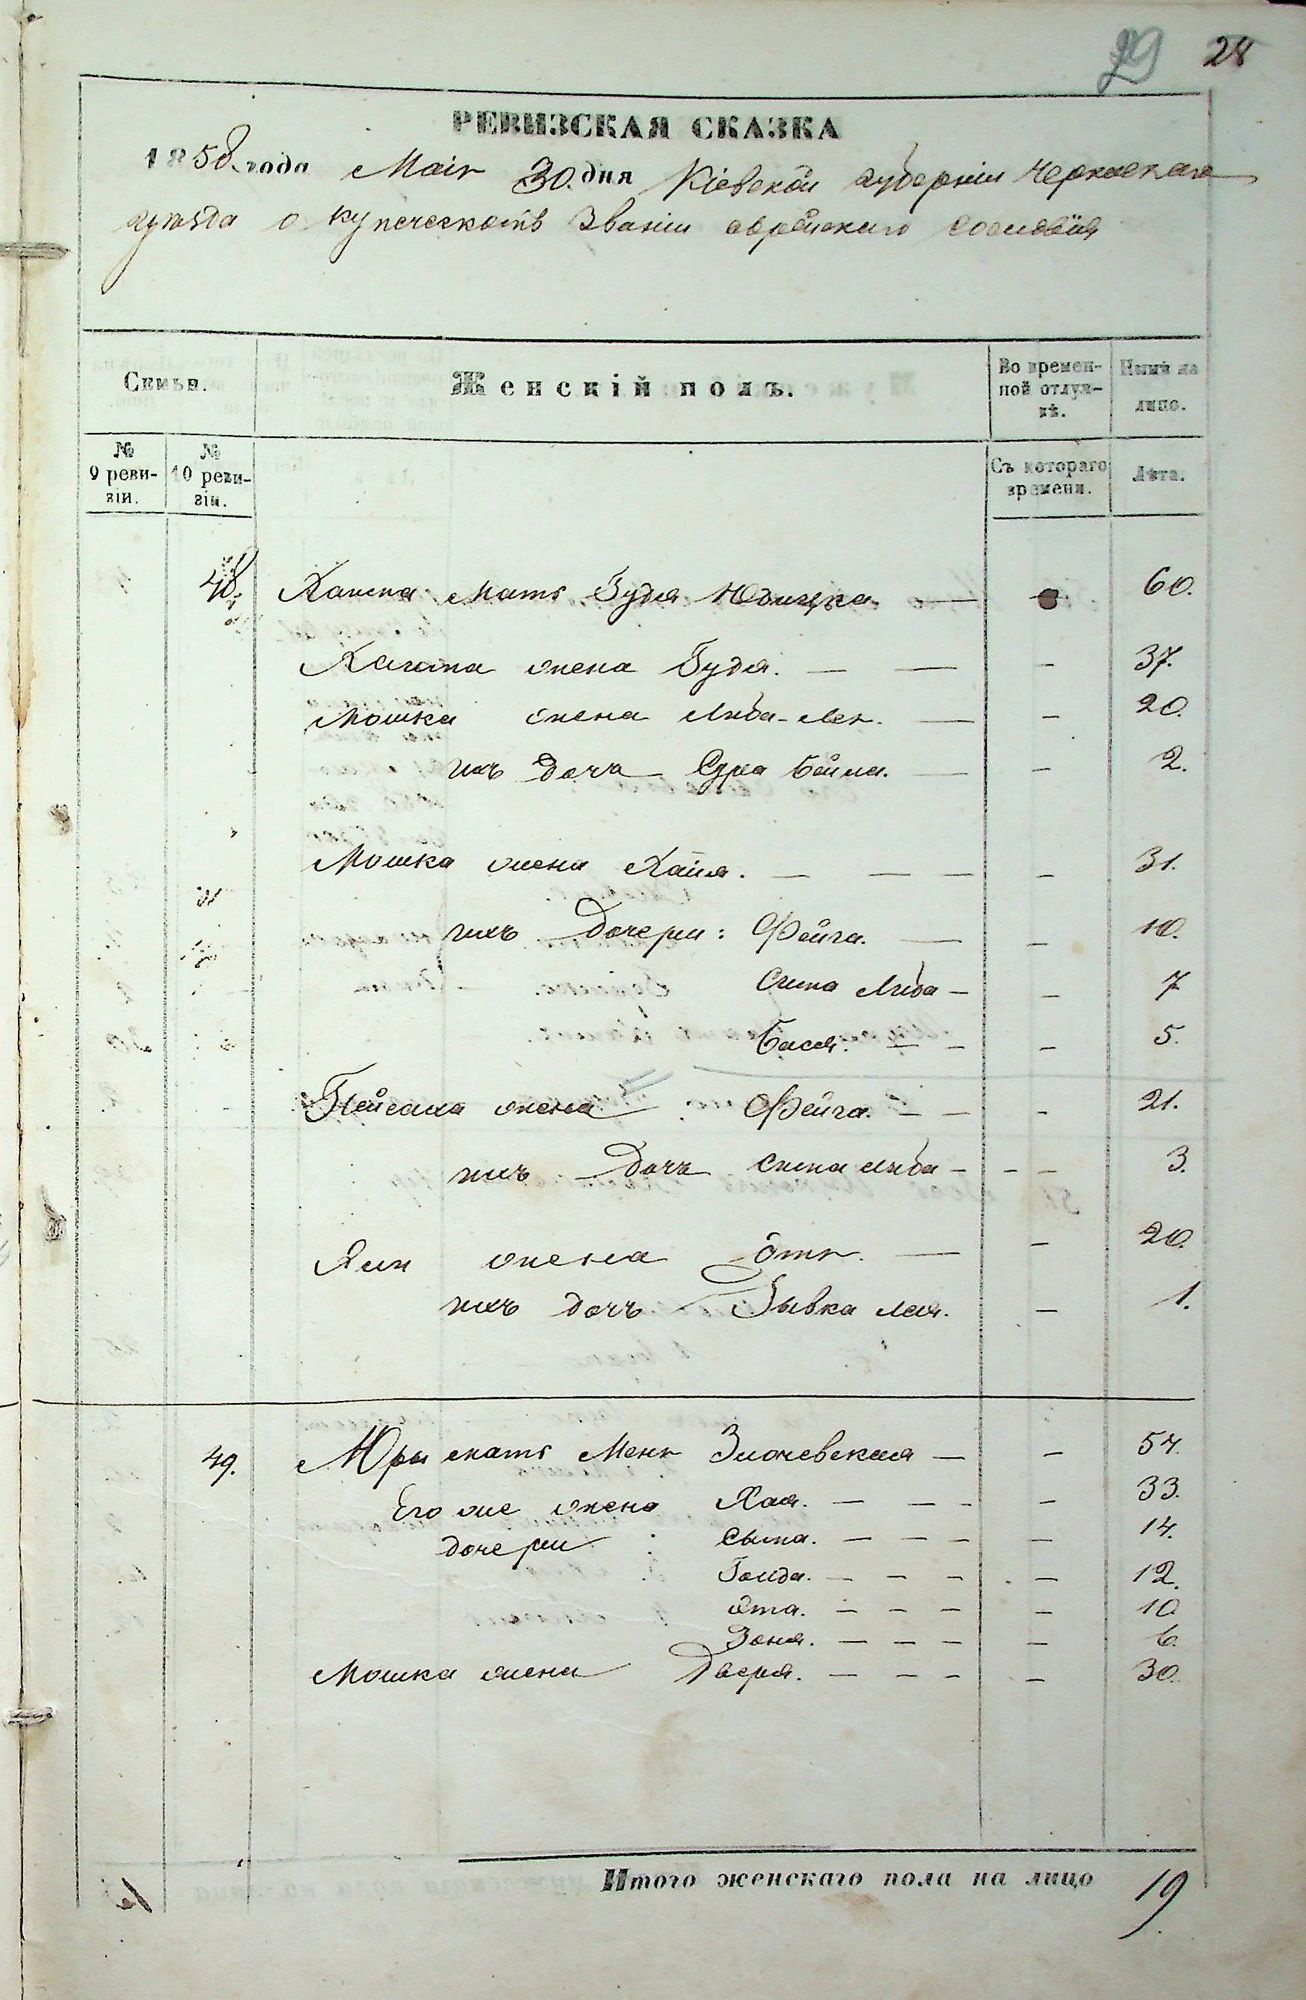 29 28
РЕВИЗСКАЯ СКАЗКА
1858 года Маія 30. дня Кіевской губерніи Черкаскаго
уѣзда о купеческомъ званіи еврейскаго сословія
Семьи.
Женскій полъ.
Во времен-
ной отлуч-
кѣ.
Нынѣ на
лицо.
№
9 реви-
зіи.
№
10 реви-
зіи.
Съ котораго
времени.
Лѣта.
48. мать Будя — 60.
жена Будя. — — — 37.
Мошка жена Либа-Лея. — — 20.
ихъ дочь Сура Бейла. — — 2.
Мошка жена Хайя. — — — — 31.
ихъ дочери: Фейга. — — 10.
Сима Либа — — 7
Бася. — — — 5.
Пейсаха жена Фейга. — — — 21.
ихъ дочь Сима Либа — — — 3.
жена — — 20.
ихъ дочь Зывка Лея. — 1.
49. Юры мать Меня Злочевская — — 54.
Его же жена Хая. — — — — 33.
дочери: Сыма. — — — — 14.
Голда. — — — — 12.
Ота. — — — — 10
Зоня. — — — — 6.
Мошка жена Двера. — — — — 30.
Итого женскаго пола на лицо 19